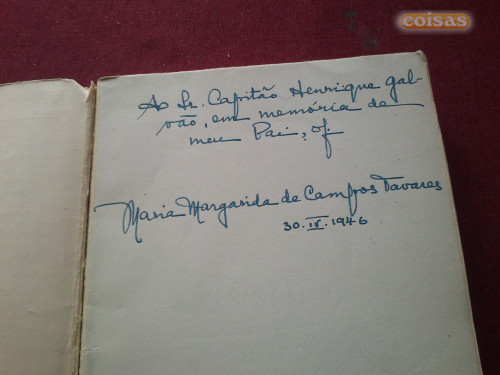 coisas
Ao Sr. Capitão Henrique Gal-
vão, em memória de
meu Pai, of.
Maria Margarida de Campos Tavares
30.IV.1946